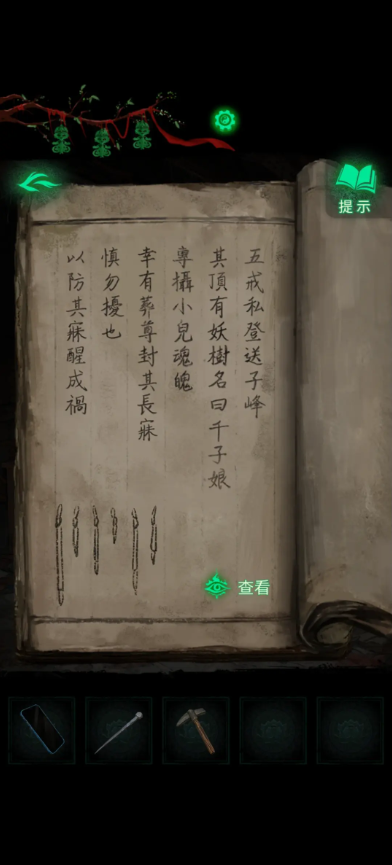 五戒私登送子峰
其頂有妖樹名曰千子娘
專攝小兒魂魄
幸有葬尊封其長寐
慎勿擾也
以防其寐醒成禍
提示
查看